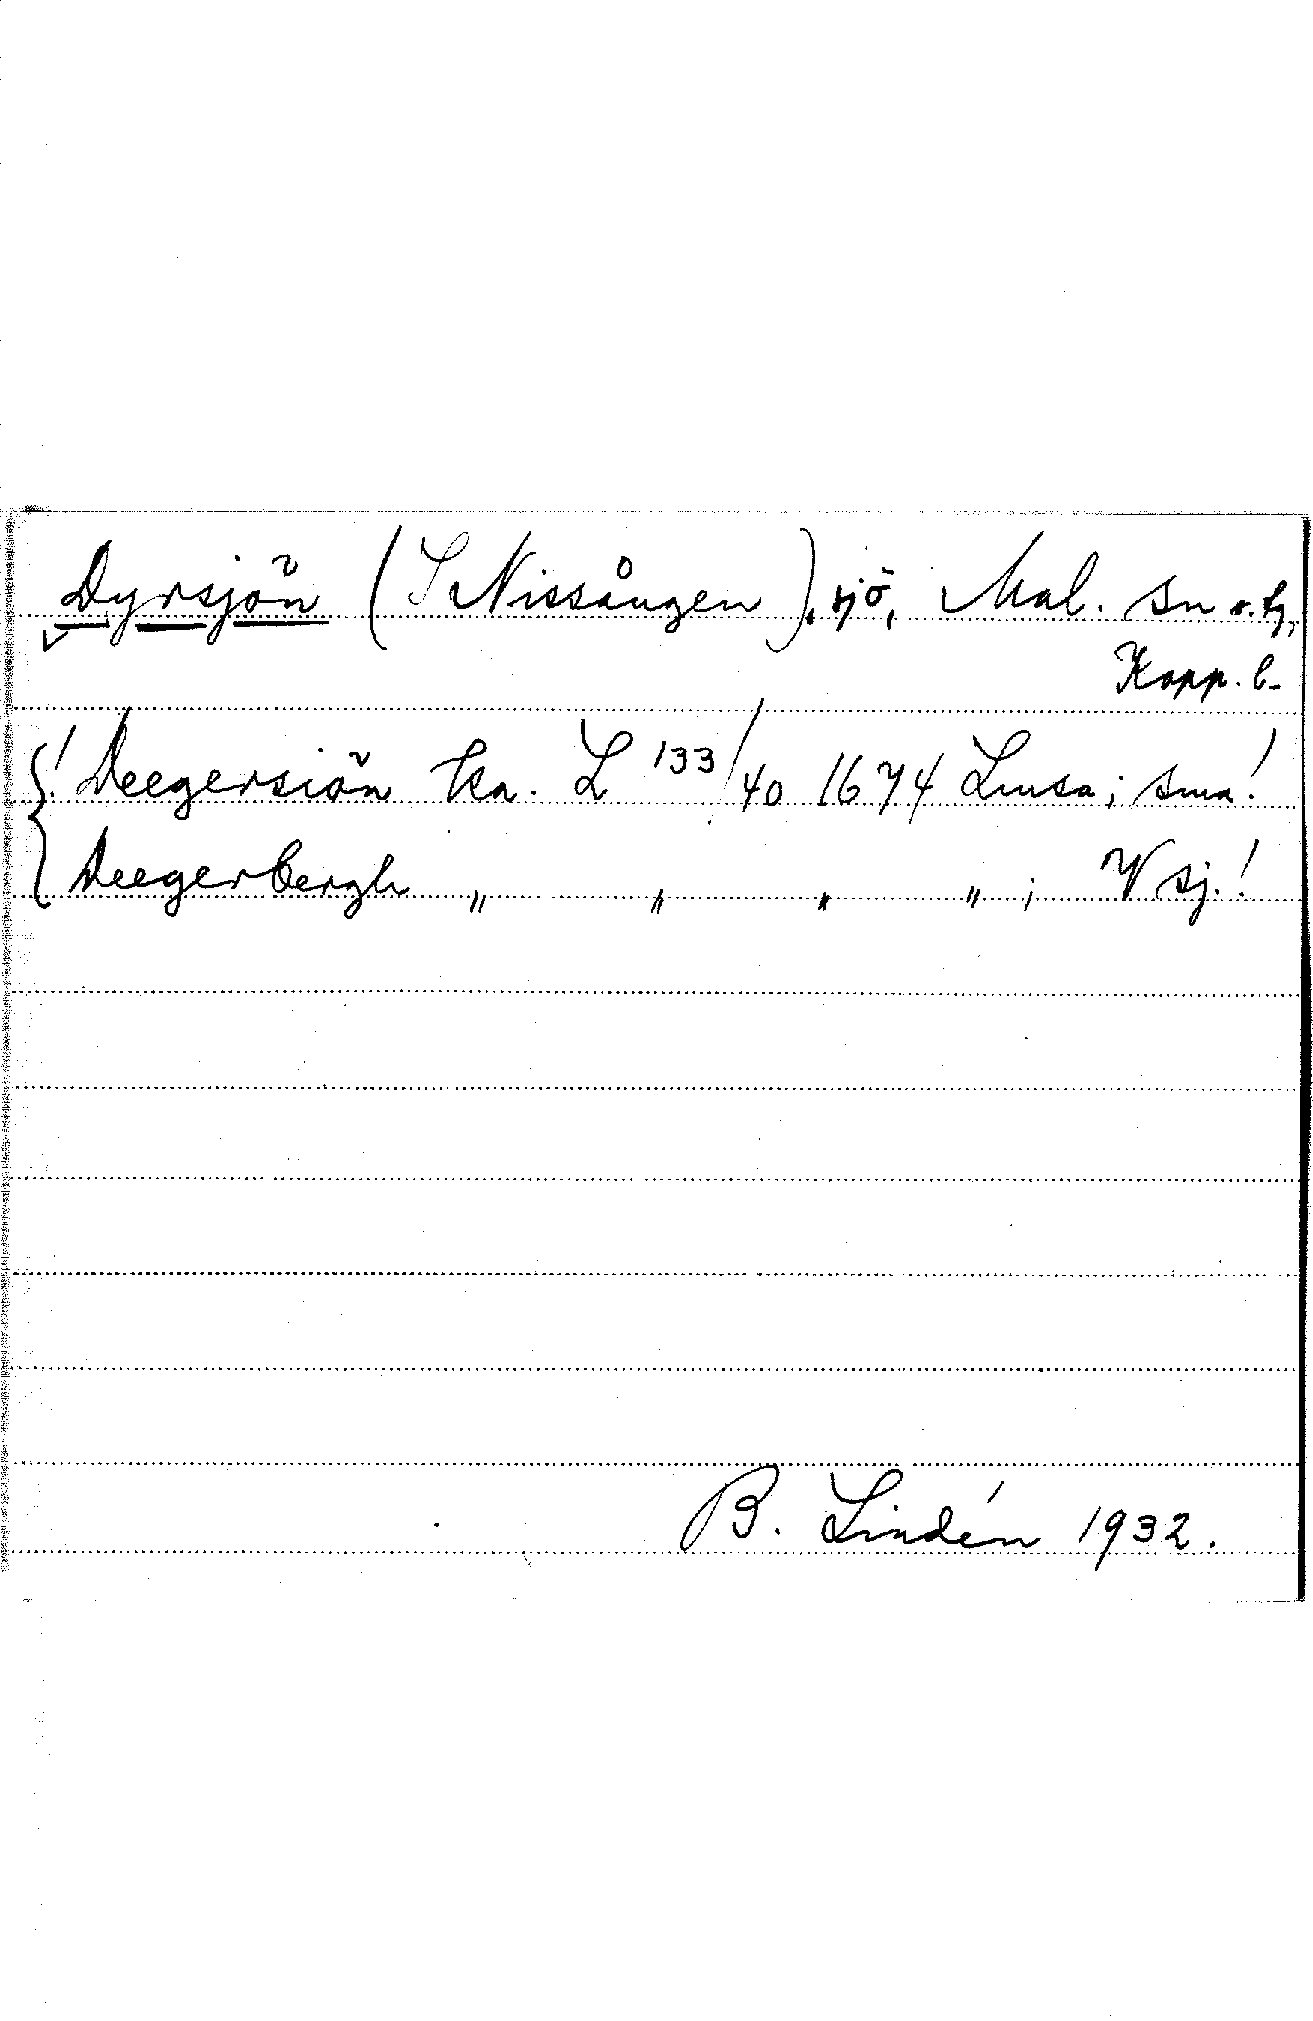 Dyrsjön (S Nissången), sjö, Mal. sn o. tg,
Kopp. l.
! Deegersiön ka. L 133/40 1674 Lmsa; sma!
Deegerbergh " " " " ; V sj.!
B. Lindén 1932.